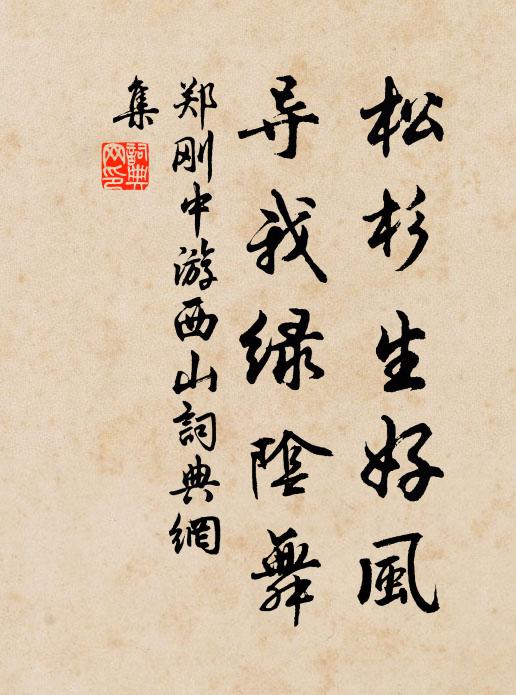 松杉生好風
导我緑陰舞
郑刚中游西山詞典網
集
詞典
网印